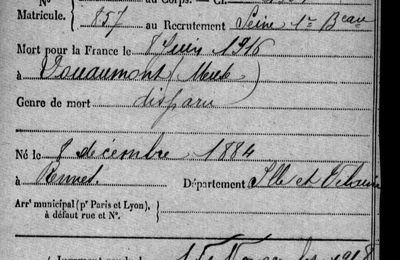 N° au Corps. — Cl.
Matricule. 857 au Recrutement Seine 1er Bau
Mort pour la France le 8 Juin 1916
à Douaumont (Meuse)
Genre de mort disparu
Né le 8 décembre 1884
à Rennes Département Ille et Vilaine
Arrt municipal (pr Paris et Lyon),
à défaut rue et N°.